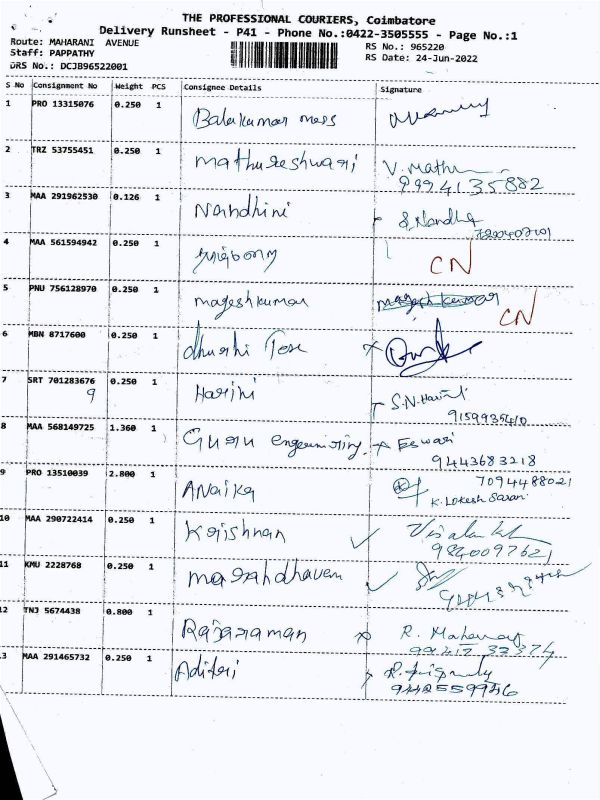 THE PROFESSIONAL COURIERS, Coimbatore
Delivery Runsheet - P41 - Phone No.:0422-3505555 - Page No.:1
Route: MAHARANI AVENUE
RS No.: 965220
Staff: PAPPATHY
RS Date: 24-Jun-2022
DRS No.: DCJB96522001
S No Consignment No Weight PCS Consignee Details Signature
1 PRO 13315076 0.250 1 Balakumar mess
2 TRZ 53755451 0.250 1 Mathureshwari V. Mathu
9994135882
3 MAA 291962530 0.126 1 Nandhini S. Nandha
4 MAA 561594942 0.250 1 CN
5 PNU 756128970 0.250 1 mageshkumar magesh kumar
CN
6 MBN 8717600 0.250 1
7 SRT 701283676 0.250 1 Harini S.N. Harini
9
9159935410
8 MAA 568149725 1.360 1 Guru Eswari
9443683218
9 PRO 13510039 2.800 1 ANaika 7094488021
K. Lokesh Saran
10 MAA 290722414 0.250 1 Krishnan
11 KMU 2228768 0.250 1
12 TNJ 5674438 0.800 1 Rajaraman R.
3 MAA 291465732 0.250 1 R.
9442559946